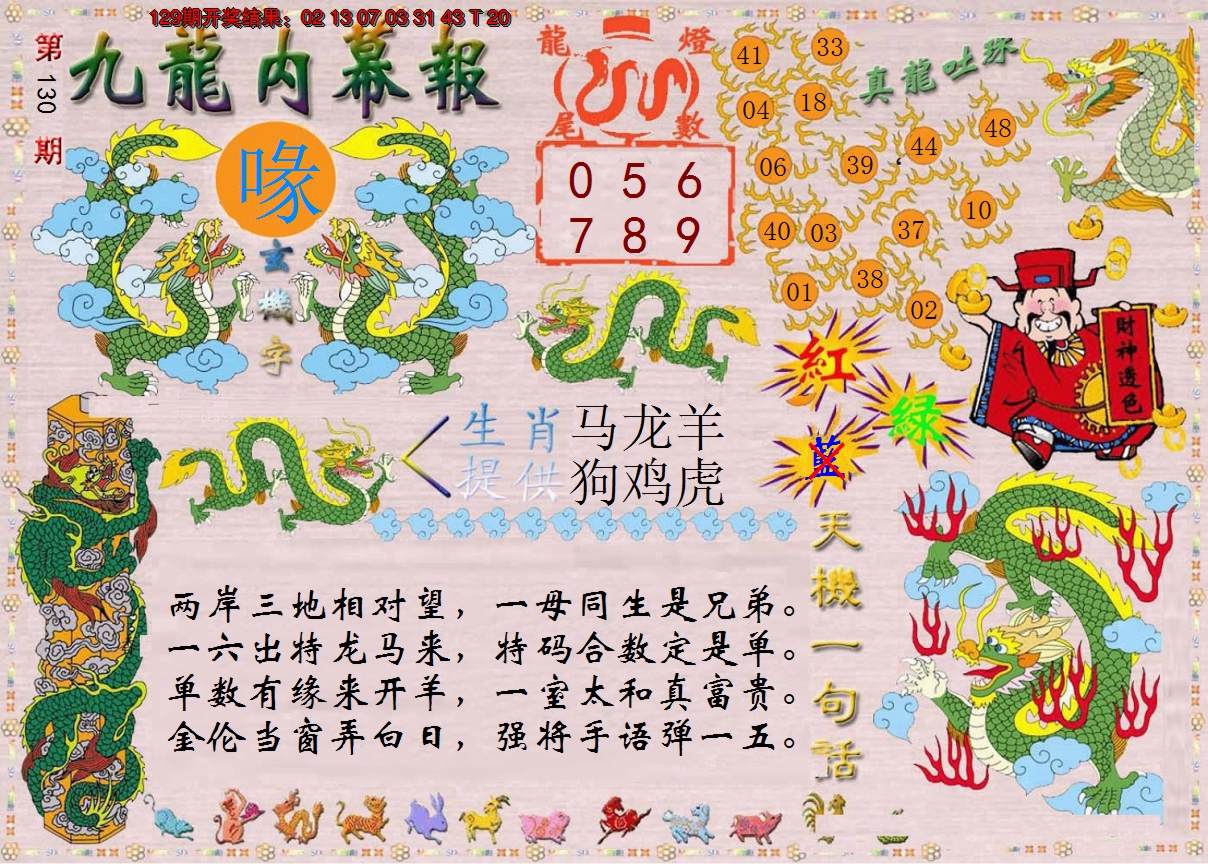 129期开奖结果：02 13 07 03 31 43 T 20
第130期
九龍内幕報
喙
玄機字
龍燈
尾數
0 5 6
7 8 9
真龍吐珠
41 33
04 18
06 39 44 48
40 03 37 10
01 38 02
財神透色
紅
綠
藍
生肖 马龙羊
提供 狗鸡虎
天機一句話
两岸三地相对望，一母同生是兄弟。
一六出特龙马来，特码合数定是单。
单数有缘来开羊，一室太和真富贵。
金伦当窗弄白日，强将手语弹一五。